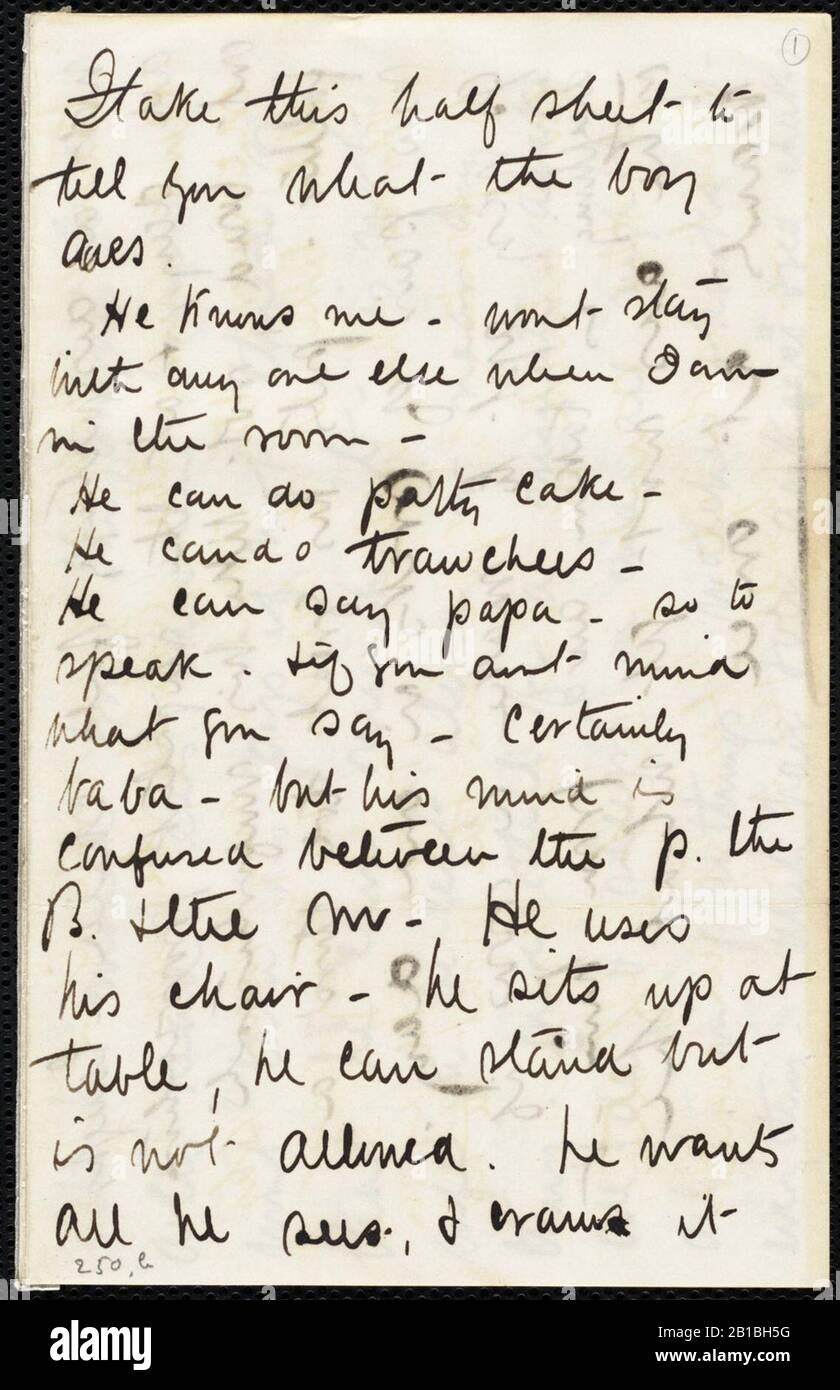 1
I take this half sheet to
tell you what the boy
does.
He Knows me - wont stay
with any one else when I am
in the room -
He can do patty cake -
He can do
He can say papa - so to
speak. & if you aint mind
what you say - Certainly
baba - but his mind is
confused between the p. the
B. & the m - He uses
his chair - he sits up at
table, he can stand but
is not allowed. he wants
all he sees, & crams it
250,
alamy
Image ID: 2B1BH5G
www.alamy.com